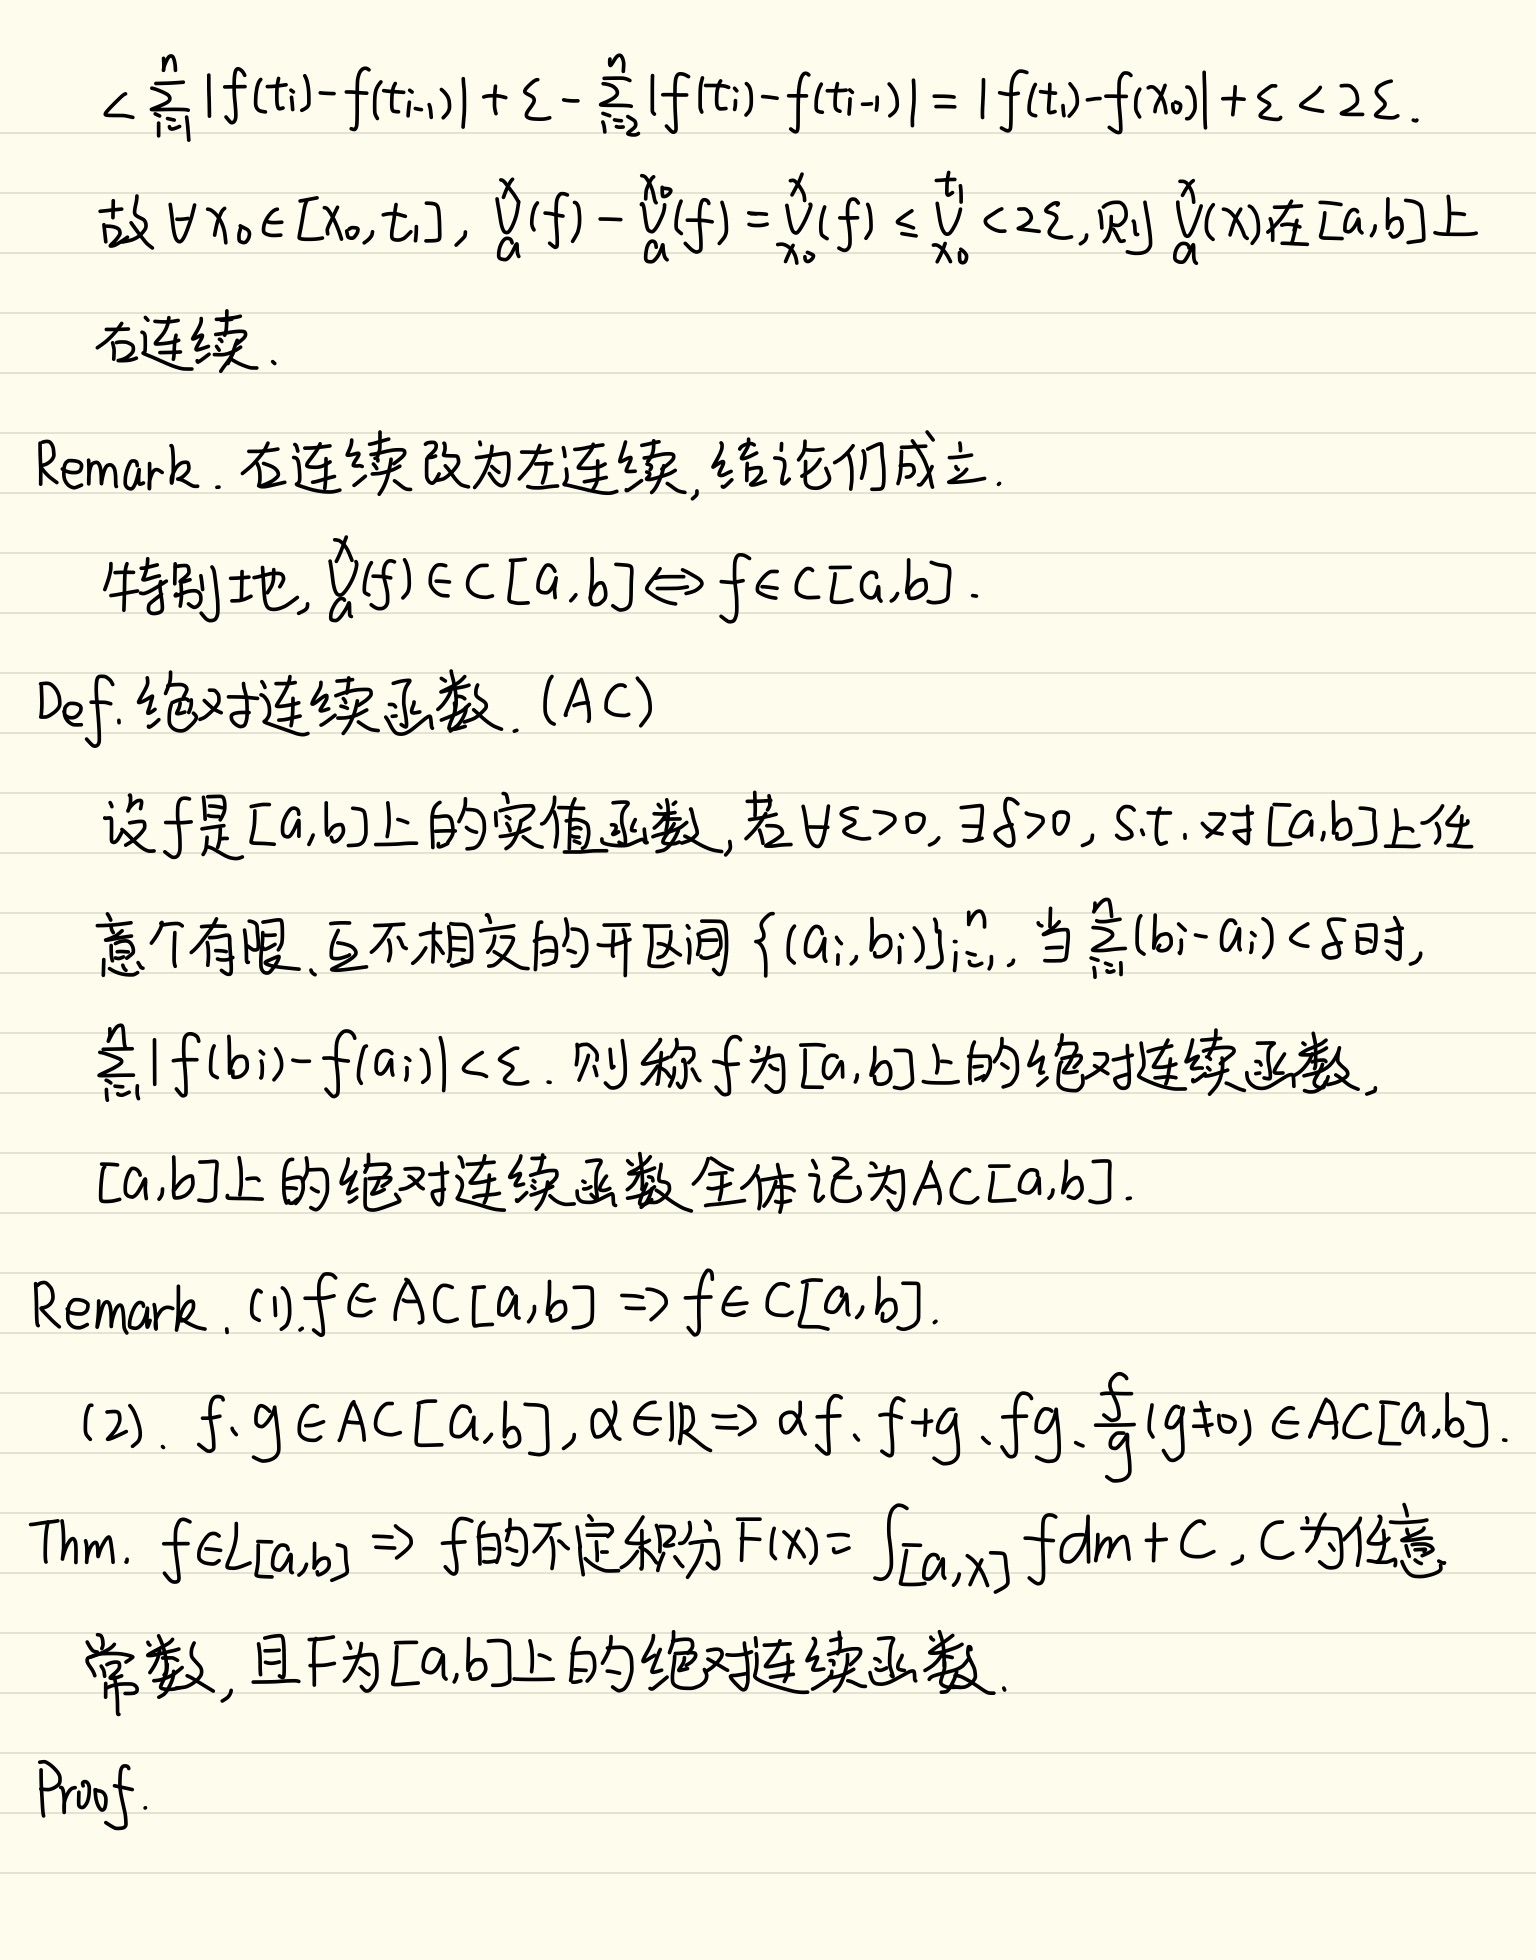 < \sum_{i=1}^{n} |f(t_i)-f(t_{i-1})| + ε - \sum_{i=2}^{n} |f(t_i)-f(t_{i-1})| = |f(t_1)-f(x_0)| + ε < 2ε.
故 ∀x_0∈[x_0,t_1], \bigvee_a^x(f) - \bigvee_a^{x_0}(f) = \bigvee_{x_0}^x(f) ≤ \bigvee_{x_0}^{t_1} < 2ε, 则 \bigvee_a^x(x)在[a,b]上
右连续.
Remark. 右连续改为左连续, 结论们成立.
特别地, \bigvee_a^x(f)∈C[a,b] ⇔ f∈C[a,b].
Def. 绝对连续函数. (AC)
设f是[a,b]上的实值函数, 若∀ε>0, ∃δ>0, s.t. 对[a,b]上任
意个有限、互不相交的开区间{(a_i,b_i)}_{i=1}^n, 当\sum_{i=1}^{n}(b_i-a_i)<δ时,
\sum_{i=1}^{n}|f(b_i)-f(a_i)|<ε. 则称f为[a,b]上的绝对连续函数,
[a,b]上的绝对连续函数全体记为AC[a,b].
Remark. (1). f∈AC[a,b] ⇒ f∈C[a,b].
(2). f、g∈AC[a,b], α∈ℝ ⇒ αf、f+g、fg、\frac{f}{g}(g≠0)∈AC[a,b].
Thm. f∈L_{[a,b]} ⇒ f的不定积分F(x)=∫_{[a,x]}fdm+C, C为任意
常数, 且F为[a,b]上的绝对连续函数.
Proof.